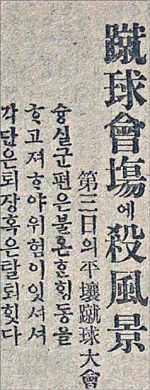 蹴球會場에殺風景
第三日의平壤蹴球大會
숭실군편은불혼혼힝동을
ᄒᆞ고져ᄒᆞ야위험이잇서서
각단은퇴장혹은탈퇴힛다